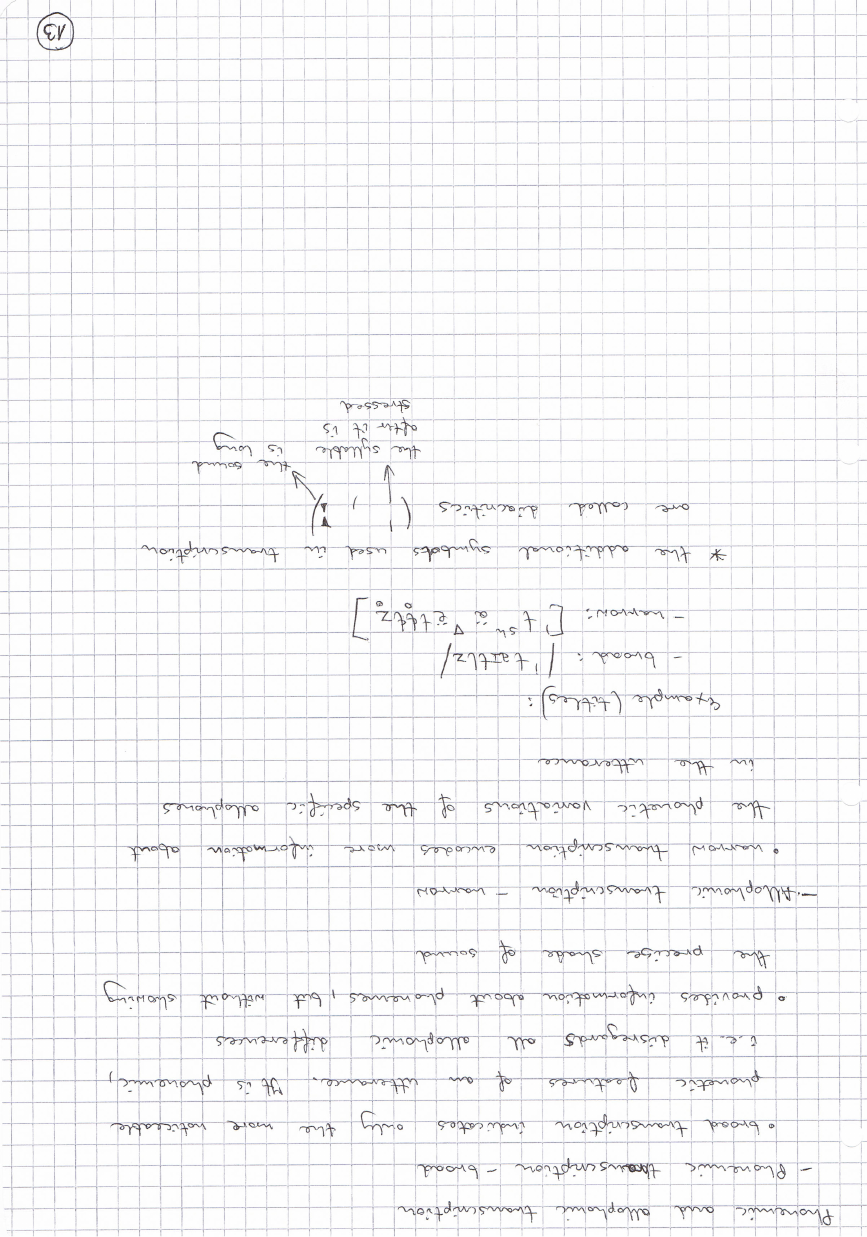 Phonemic and allophonic transcription
- Phonemic transcription - broad
• broad transcription indicates only the more noticeable
phonetic features of an utterance. It is phonemic,
i.e. it disregards all allophonic differences
• provides information about phonemes, but without showing
the precise shade of sound
- Allophonic transcription - narrow
• narrow transcription encodes more information about
the phonetic variations of the specific allophones
in the utterance
Example (titles):
- broad: /ˈtaɪtlz/
- narrow:
* the additional symbols used in transcription
are called diacritics (ˈ , ː)
the syllable
after it is
stressed
the sound
is long
13